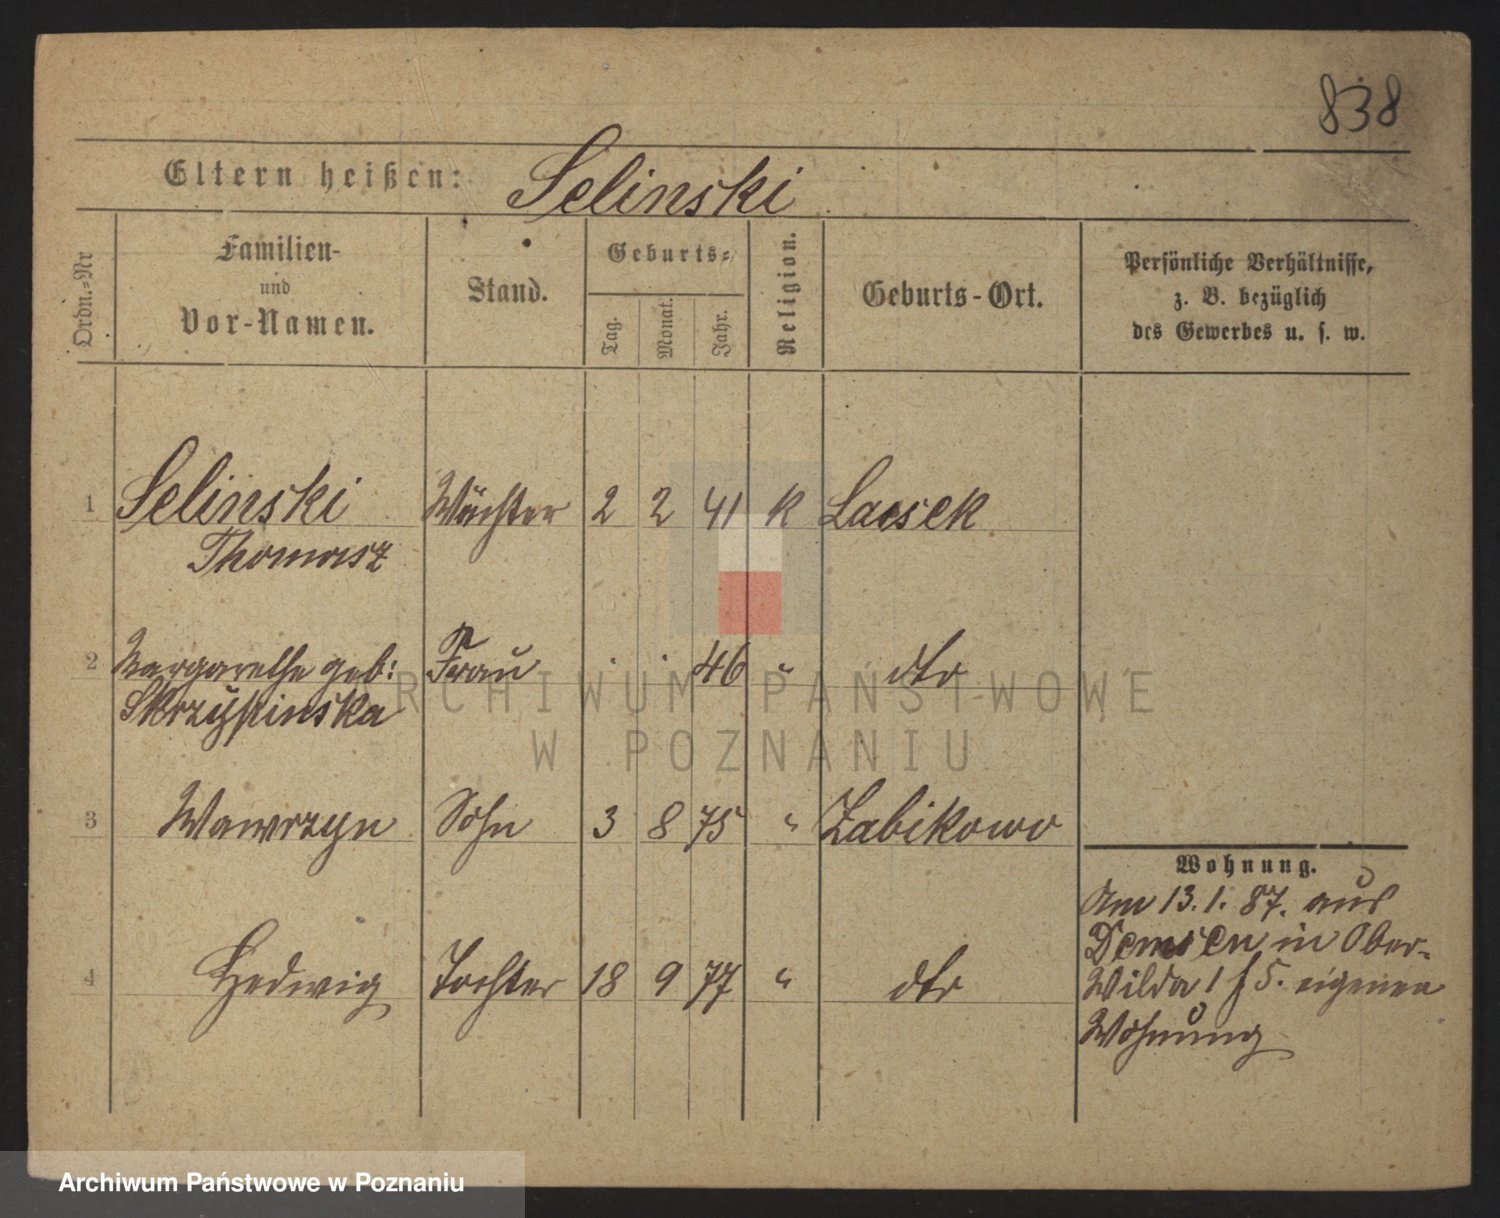 838
Eltern heißen: Selinski
Ordn.-Nr
Familien-
und
Vor-Namen.
Stand.
Geburts-
Tag.
Monat.
Jahr.
Religion.
Geburts-Ort.
Persönliche Verhältnisse,
z. B. bezüglich
des Gewerbes u. s. w.
1 Selinski Wächter 2 2 41 K Lassek
Thomasz
2 Margarethe geb: Frau . . 46 " dto
Skrzypinska
3 Wawrzyn Sohn 3 8 75 " Zabikowo
4 Hedwig Tochter 18 9 77 " dto
Wohnung.
Am 13.1.87. aus
Demsen in Ober-
Wilda 1 f 5. eigenen
Wohnung
ARCHIWUM PAŃSTWOWE
W POZNANIU
Archiwum Państwowe w Poznaniu